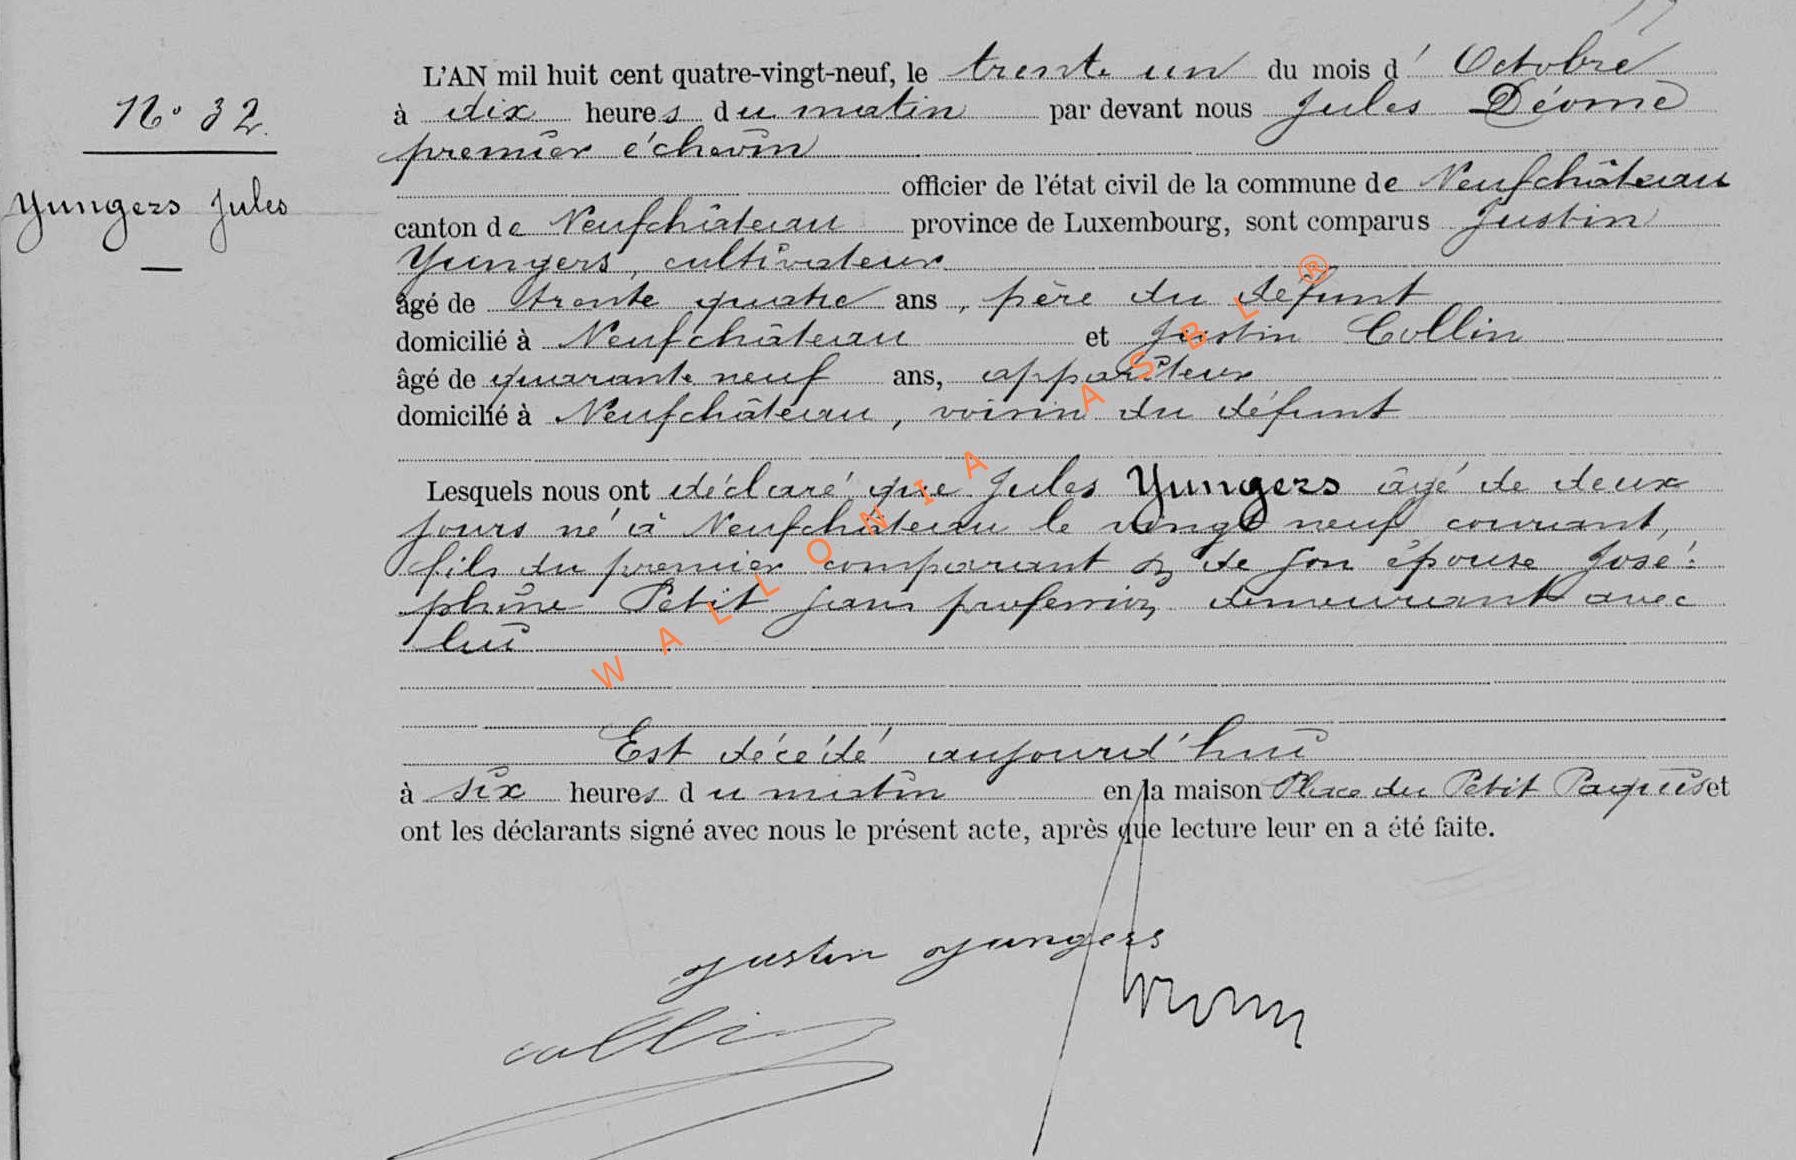 No 32
Yungers Jules
L'AN mil huit cent quatre-vingt-neuf, le trente un du mois d' Octobre
à dix heures du matin par devant nous Jules Déome
premier échevin
officier de l'état civil de la commune de Neufchâteau
canton de Neufchâteau province de Luxembourg, sont comparus Justin
Yungers, cultivateur
âgé de trente quatre ans, père du défunt
domicilié à Neufchâteau et Justin Collin
âgé de quarante neuf ans, appariteur
domicilié à Neufchâteau, voisin du défunt
Lesquels nous ont déclaré que Jules Yungers âgé de deux
jours né à Neufchâteau le vingt neuf courant,
fils du premier comparant & de son épouse José-
phine Petit sans profession demeurant avec
lui
Est décédé aujourd'hui
à six heures du matin en la maison Place du Petit Paquis et
ont les déclarants signé avec nous le présent acte, après que lecture leur en a été faite.
Justin Yungers
Collin
WALLONIA ASBL ®